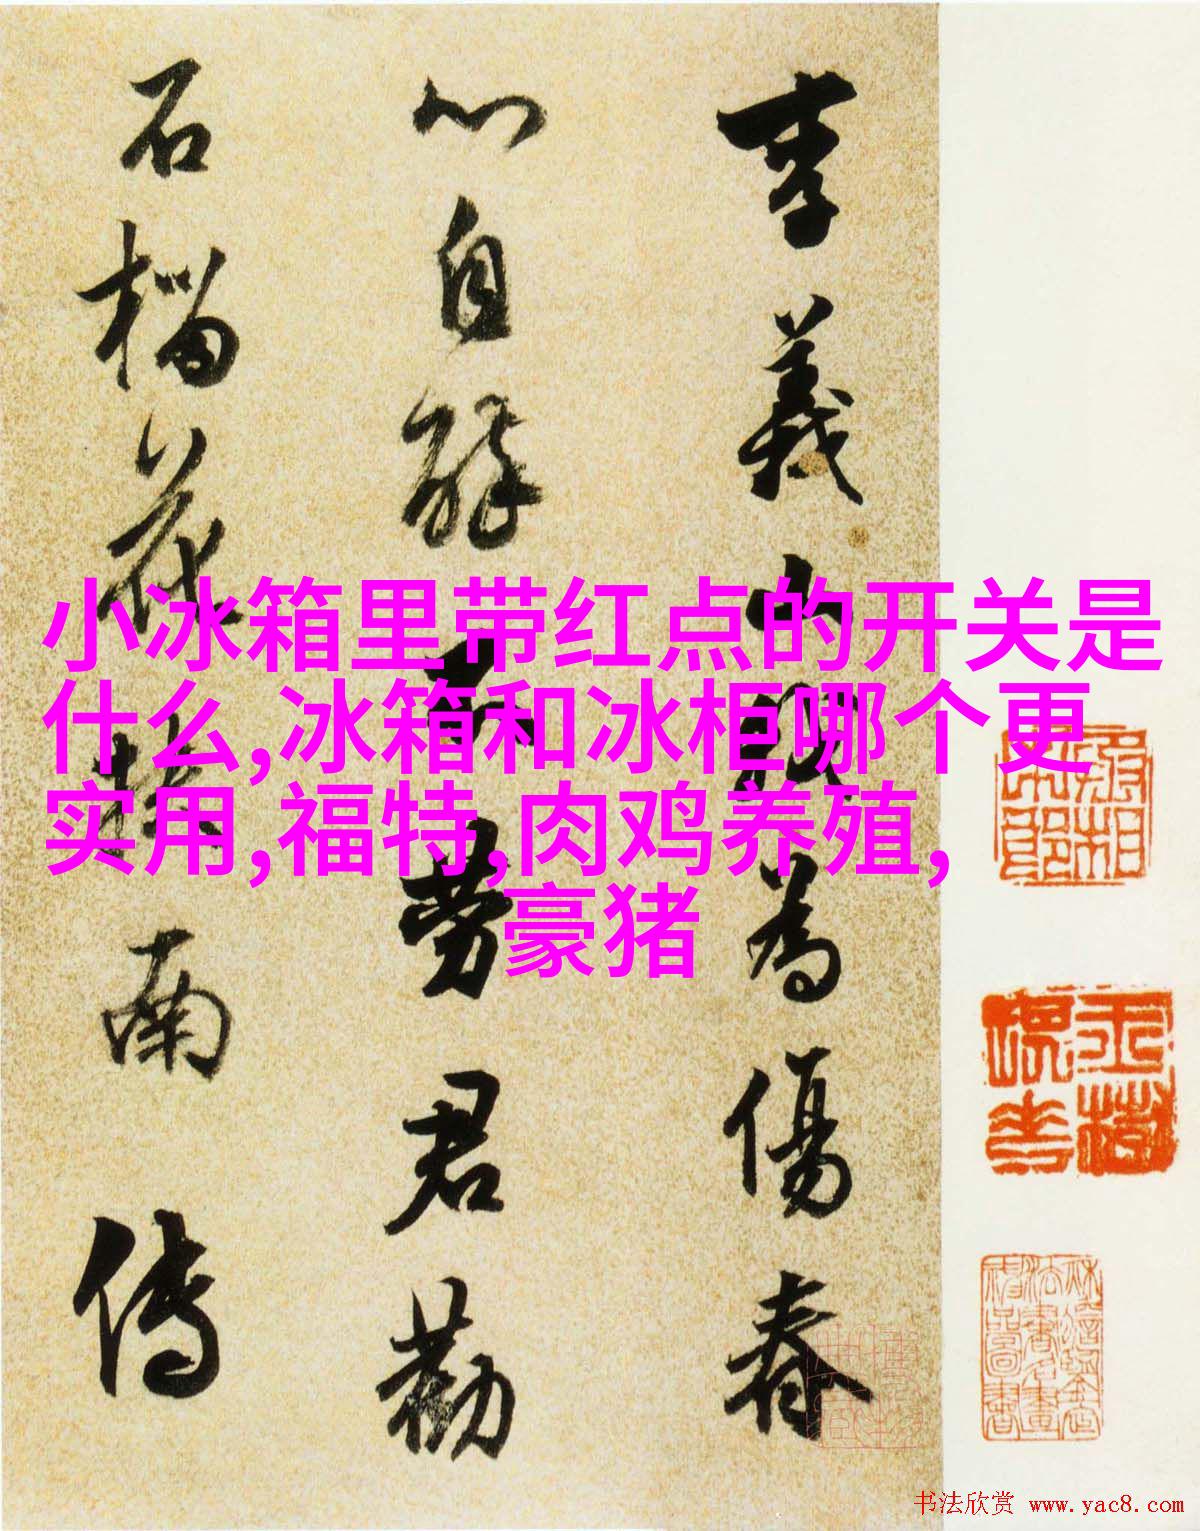 小冰箱里带红点的开关是
什么,冰箱和冰柜哪个更
实用,福特,肉鸡养殖,
豪猪
李義山我為傷春
心自醉不勞君勸
石榴花南傳
书法欣赏 www.yac8.com